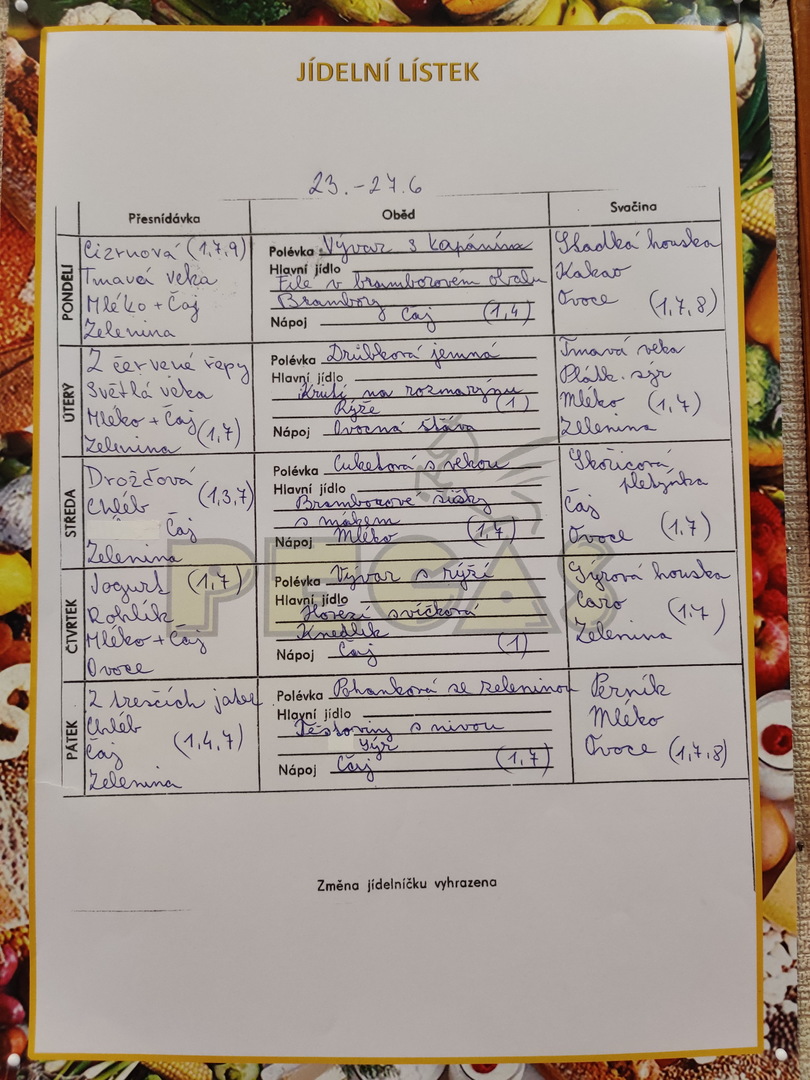 JÍDELNÍ LÍSTEK
23.-27.6
Přesnídávka
Oběd
Svačina
PONDĚLÍ
Cizrnová (1,7,9)
Tmavá veka
Mléko + Čaj
Zelenina
Polévka Vývar s kapáním
Hlavní jídlo
File v bramborovém obalu
Brambory
Nápoj Čaj (1,4)
Sladká houska
Kakao
Ovoce (1,7,8)
ÚTERÝ
Z červené řepy
Světlá veka
Mléko + Čaj
Zelenina (1,7)
Polévka Drůbková jemná
Hlavní jídlo
Krůtí na rozmarýnu
Rýže (1)
Nápoj Ovocná šťáva
Tmavá veka
Plátk. sýr
Mléko (1,7)
Zelenina
STŘEDA
Drožďová
Chléb (1,3,7)
Čaj
Zelenina
Polévka Cuketová s vekou
Hlavní jídlo
Bramborové šišky
s mákem
Nápoj Mléko (1,7)
Skořicová
pletýnka
Čaj
Ovoce (1,7)
ČTVRTEK
Jogurt (1,7)
Rohlík
Mléko + Čaj
Ovoce
Polévka Vývar s rýží
Hlavní jídlo
Hovězí svíčková
Knedlík
Nápoj Čaj (1)
Sýrová houska
Caro
Zelenina (1,7)
PÁTEK
Z tresčích jater
Chléb
Čaj (1,4,7)
Zelenina
Polévka Pohanková se zeleninou
Hlavní jídlo
Těstoviny s nivou
Sýr
Nápoj Čaj (1,7)
Perník
Mléko
Ovoce (1,7,8)
PEGAS
Změna jídelníčku vyhrazena